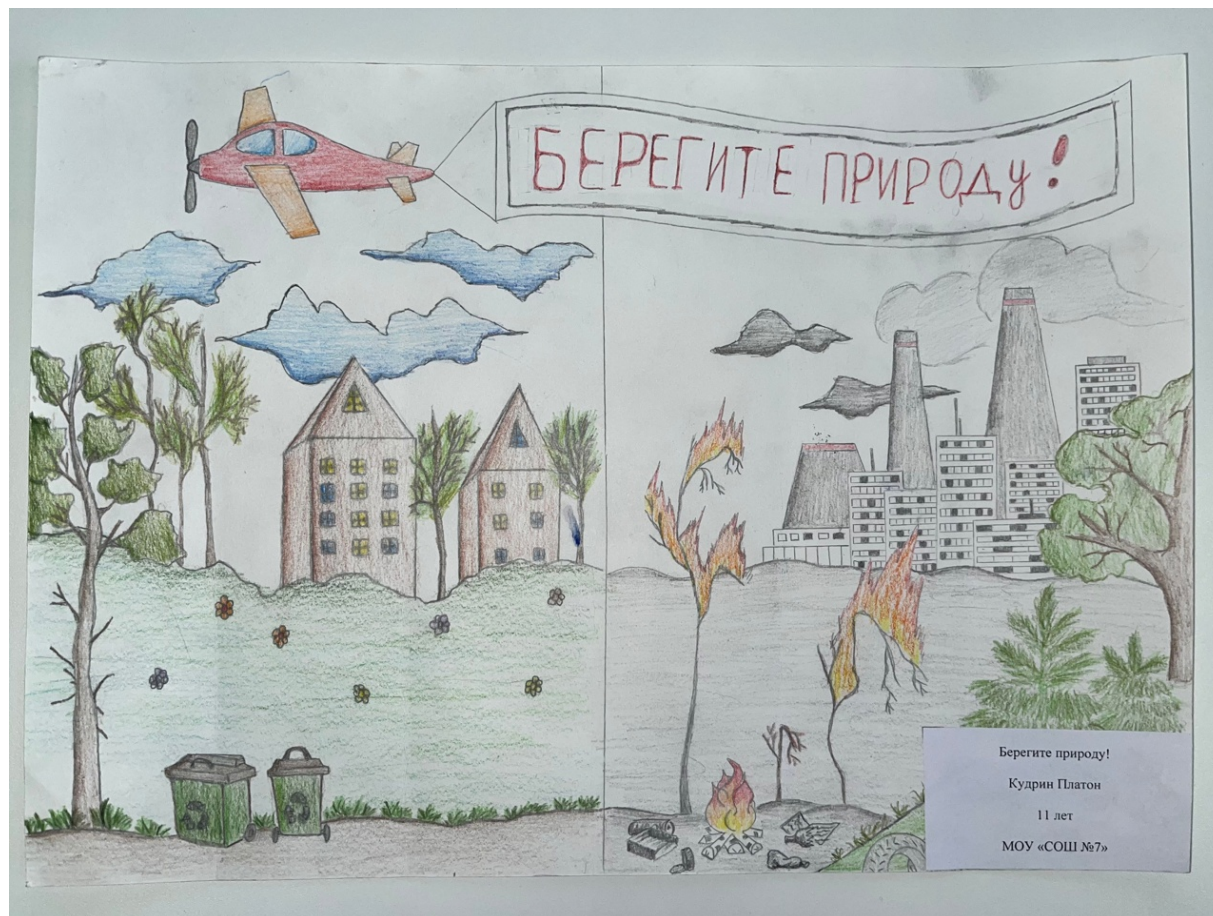 БЕРЕГИТЕ ПРИРОДУ!
Берегите природу!
Кудрин Платон
11 лет
МОУ «СОШ №7»